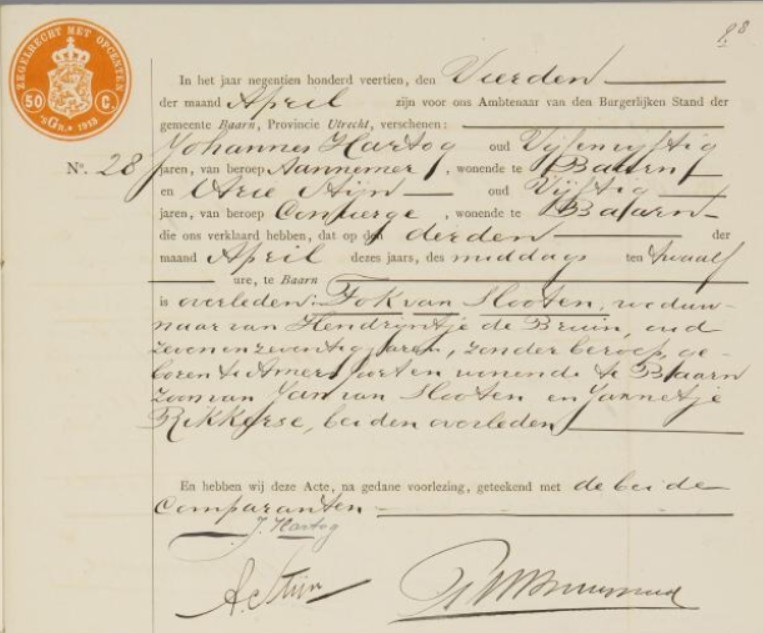 98
ZEGELRECHT MET OPCENTEN
50 C.
'sGR. * 1913
In het jaar negentien honderd veertien, den Vierden
der maand April zijn voor ons Ambtenaar van den Burgerlijken Stand der
gemeente Baarn, Provincie Utrecht, verschenen:
Johannes Hartog oud Vijfenvijftig
No. 28 jaren, van beroep Aannemer, wonende te Baarn
en Arie Stijn oud Vijftig
jaren, van beroep Concierge, wonende te Baarn
die ons verklaard hebben, dat op den derden der
maand April dezes jaars, des middags ten twaalf
ure, te Baarn
is overleden: Fok van Slooten, weduw-
naar van Hendrijntje de Bruin, oud
zevenenzeventig jaren, zonder beroep, ge-
boren te Amersfoort en wonende te Baarn
zoon van Jan van Slooten en Jannetje
Rikkerse, beiden overleden
En hebben wij deze Acte, na gedane voorlezing, geteekend met de beide
Comparanten
J. Hartog
A. Stijn